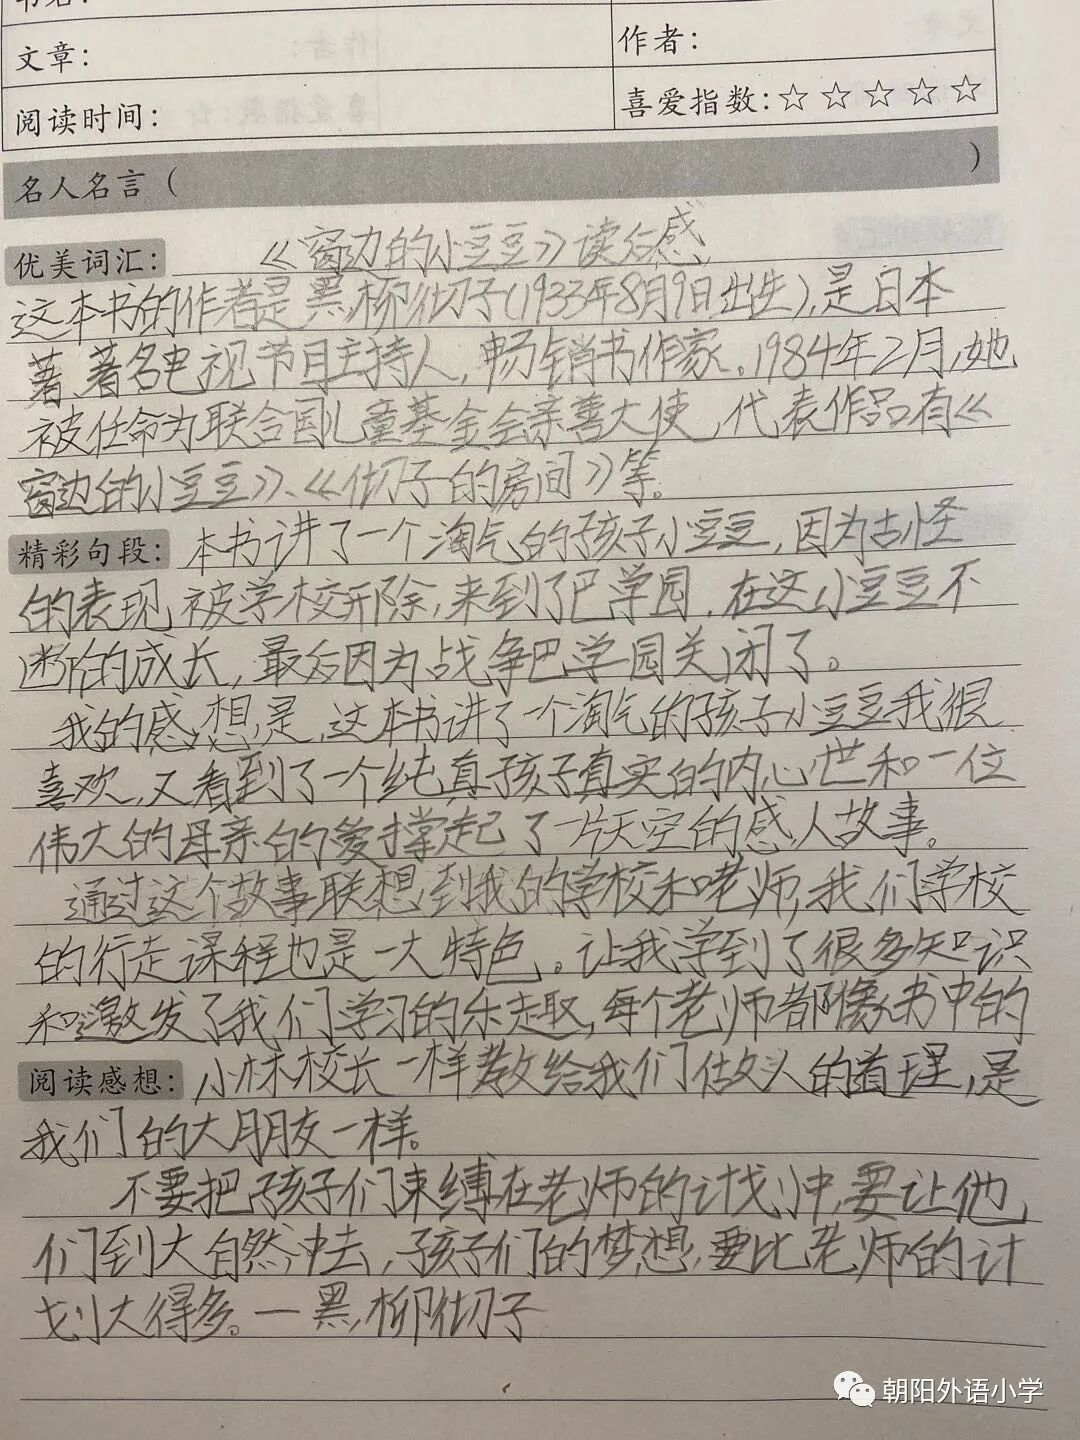 书名：
文章：
作者：
阅读时间：
喜爱指数：☆☆☆☆☆
名人名言（ ）
优美词汇：《窗边的小豆豆》读后感
这本书的作者是黑柳彻子(1933年8月9日出生),是日本
著、著名电视节目主持人，畅销书作家。1984年2月，她
被任命为联合国儿童基金会亲善大使，代表作品有《
窗边的小豆豆》、《彻子的房间》等。
精彩句段：本书讲了一个淘气的孩子小豆豆，因为古怪
的表现，被学校开除，来到了巴学园，在这，小豆豆不
断的成长，最后因为战争巴学园关闭了。
我的感想是，这本书讲了一个淘气的孩子小豆豆我很
喜欢，又看到了一个纯真孩子真实的内心世和一位
伟大的母亲的爱撑起了一片天空的感人故事。
通过这个故事联想到我的学校和老师，我们学校
的行走课程也是一大特色。让我学到了很多知识
和激发了我们学习的乐趣，每个老师都像书中的
阅读感想：小林校长一样教给我们做人的道理，是
我们的大朋友一样。
不要把孩子们束缚在老师的计划中，要让他
们到大自然中去，孩子们的梦想，要比老师的计
划大得多。一黑柳彻子
朝阳外语小学